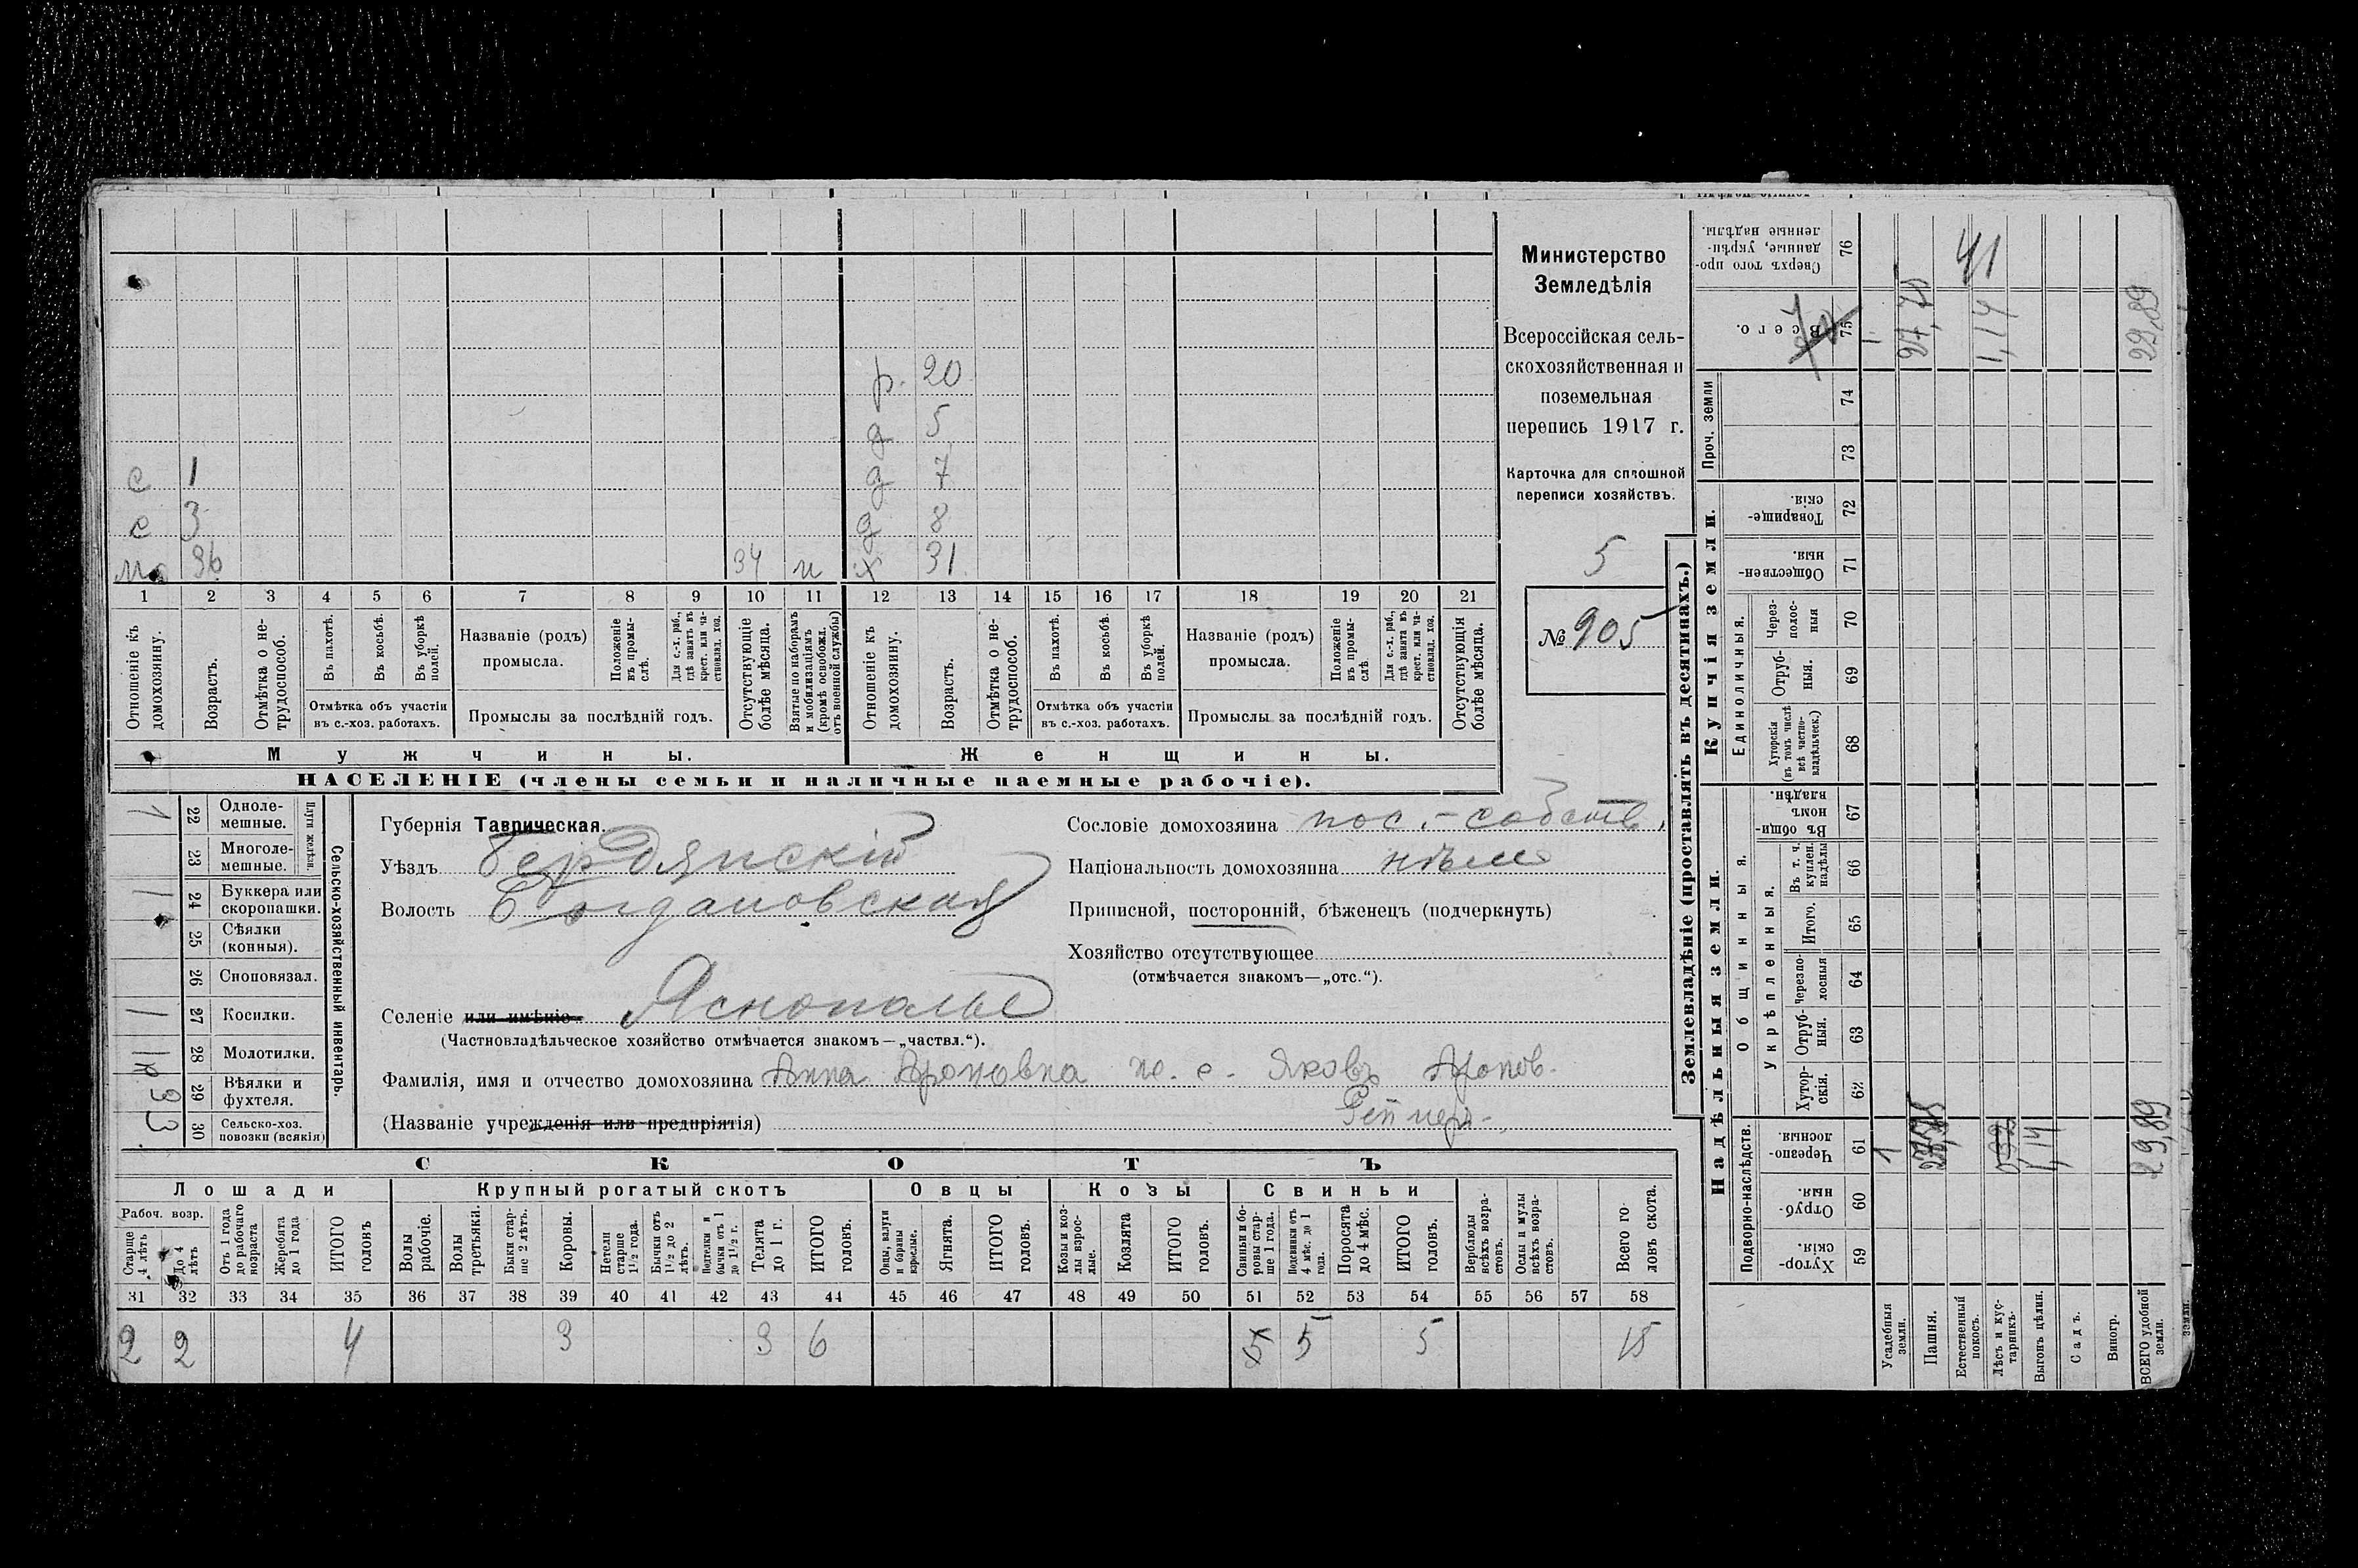 Министерство
Земледѣлія
Всероссійская сель-
скохозяйственная и
поземельная
перепись 1917 г.
Карточка для сплошной
переписи хозяйствъ.
5
№ 905
р. 20
д 5
с 1 д 7
с 3 д 8
м 36 34 х 31
1 2 3 4 5 6 7 8 9 10 11 12 13 14 15 16 17 18 19 20 21
Отношеніе къ домохозяину.
Возрастъ.
Отмѣтка о не-трудоспособ.
Въ пахотѣ.
Въ косьбѣ.
Въ уборкѣ полей.
Отмѣтка объ участіи
въ с.-хоз. работахъ.
Названіе (родъ)
промысла.
Положеніе въ промы-слѣ.
Для с.-х. раб., гдѣ занятъ въ крест. или ча-стновлад. хоз.
Промыслы за послѣдній годъ.
Отсутствующіе болѣе мѣсяца.
Взятые по наборамъ и мобилизаціямъ (кромѣ освобожд. отъ военной службы)
Отношеніе къ домохозяину.
Возрастъ.
Отмѣтка о не-трудоспособ.
Въ пахотѣ.
Въ косьбѣ.
Въ уборкѣ полей.
Отмѣтка объ участіи
въ с.-хоз. работахъ.
Названіе (родъ)
промысла.
Положеніе въ промы-слѣ
Для с.-х. раб., гдѣ занята въ крест. или ча-стновлад. хоз.
Промыслы за послѣдній годъ.
Отсутствующія болѣе мѣсяца.
Мужчины.
Женщины.
НАСЕЛЕНІЕ (члены семьи и наличные наемные рабочіе).
Сельско-хозяйственный инвентарь.
Плуги желѣзн.
1 22 Одноле-мешные.
23 Многоле-мешные.
1 24 Буккера или скоропашки.
25 Сѣялки (конныя).
26 Сноповязал.
1 27 Косилки.
28 Молотилки.
29 Вѣялки и фухтеля.
3 30 Сельско-хоз. повозки (всякія)
Губернія Таврическая.
Уѣздъ Бердянскій
Волость Богдановская
Сословіе домохозяина пос.-собств.
Національность домохозяина нѣм
Приписной, посторонній, бѣженецъ (подчеркнуть)
Хозяйство отсутствующее
(отмѣчается знакомъ—„отс.“).
Селеніе или имѣніе Яснополье
(Частновладѣльческое хозяйство отмѣчается знакомъ—„частвл.“).
Фамилія, имя и отчество домохозяина Анна Ароновна п. с. Яковъ Аронов.
(Названіе учрежденія или предпріятія)
СКОТЪ
Лошади
Крупный рогатый скотъ
Овцы
Козы
Свиньи
Рабоч. возр.
Старше 4 лѣтъ
До 4 лѣтъ
Отъ 1 года до рабочаго возраста
Жеребята до 1 года
ИТОГО головъ
Волы рабочіе.
Волы третьяки.
Быки стар-ше 2 лѣтъ.
Коровы.
Нетели старше 1½ года.
Бычки отъ 1½ до 2 лѣтъ.
Подтелки и бычки отъ 1 до 1½ г.
Телята до 1 г.
ИТОГО головъ.
Овцы, валухи и бараны взрослые.
Ягнята.
ИТОГО головъ.
Козы и коз-лы взрос-лые.
Козлята
ИТОГО головъ.
Свиньи и бо-ровы стар-ше 1 года.
Подсвинки отъ 4 мѣс. до 1 года.
Поросята до 4 мѣс.
ИТОГО головъ.
Верблюды всѣхъ возра-стовъ.
Ослы и мулы всѣхъ возра-стовъ.
Всего го-ловъ скота.
31 32 33 34 35 36 37 38 39 40 41 42 43 44 45 46 47 48 49 50 51 52 53 54 55 56 57 58
2 2 4 3 3 6 5 5 5 15
Землевладѣніе (проставлять въ десятинахъ.)
Надѣльныя земли.
Купчія земли.
Проч. земли
Подворно-наслѣдств.
Общинныя.
Укрѣпленныя.
Единоличныя.
Сверхъ того про-данные, укрѣп-ленные надѣлы. 76
Всего. 75
74
73
Товарище-скія. 72
Обществен-ныя. 71
Через-полос-ныя 70
Отруб-ныя. 69
Хуторскія (въ томъ числѣ всѣ частно-владѣльческ.) 68
Въ общин-номъ владѣн. 67
Въ т. ч. куплен. надѣлы 66
Итого. 65
Черезпо-лосныя 64
Отруб-ныя. 63
Хутор-скія. 62
Черезпо-лосныя. 61
Отруб-ныя. 60
Хутор-скія. 59
Усадебныя земли. 1 1
Пашня. 27,75
Естественный покосъ.
Лѣсъ и кус-тарникъ. 1,14
Выгонъ цѣлин. 1,14
Садъ.
Виногр.
ВСЕГО удобной земли. 29,89 29,89
41